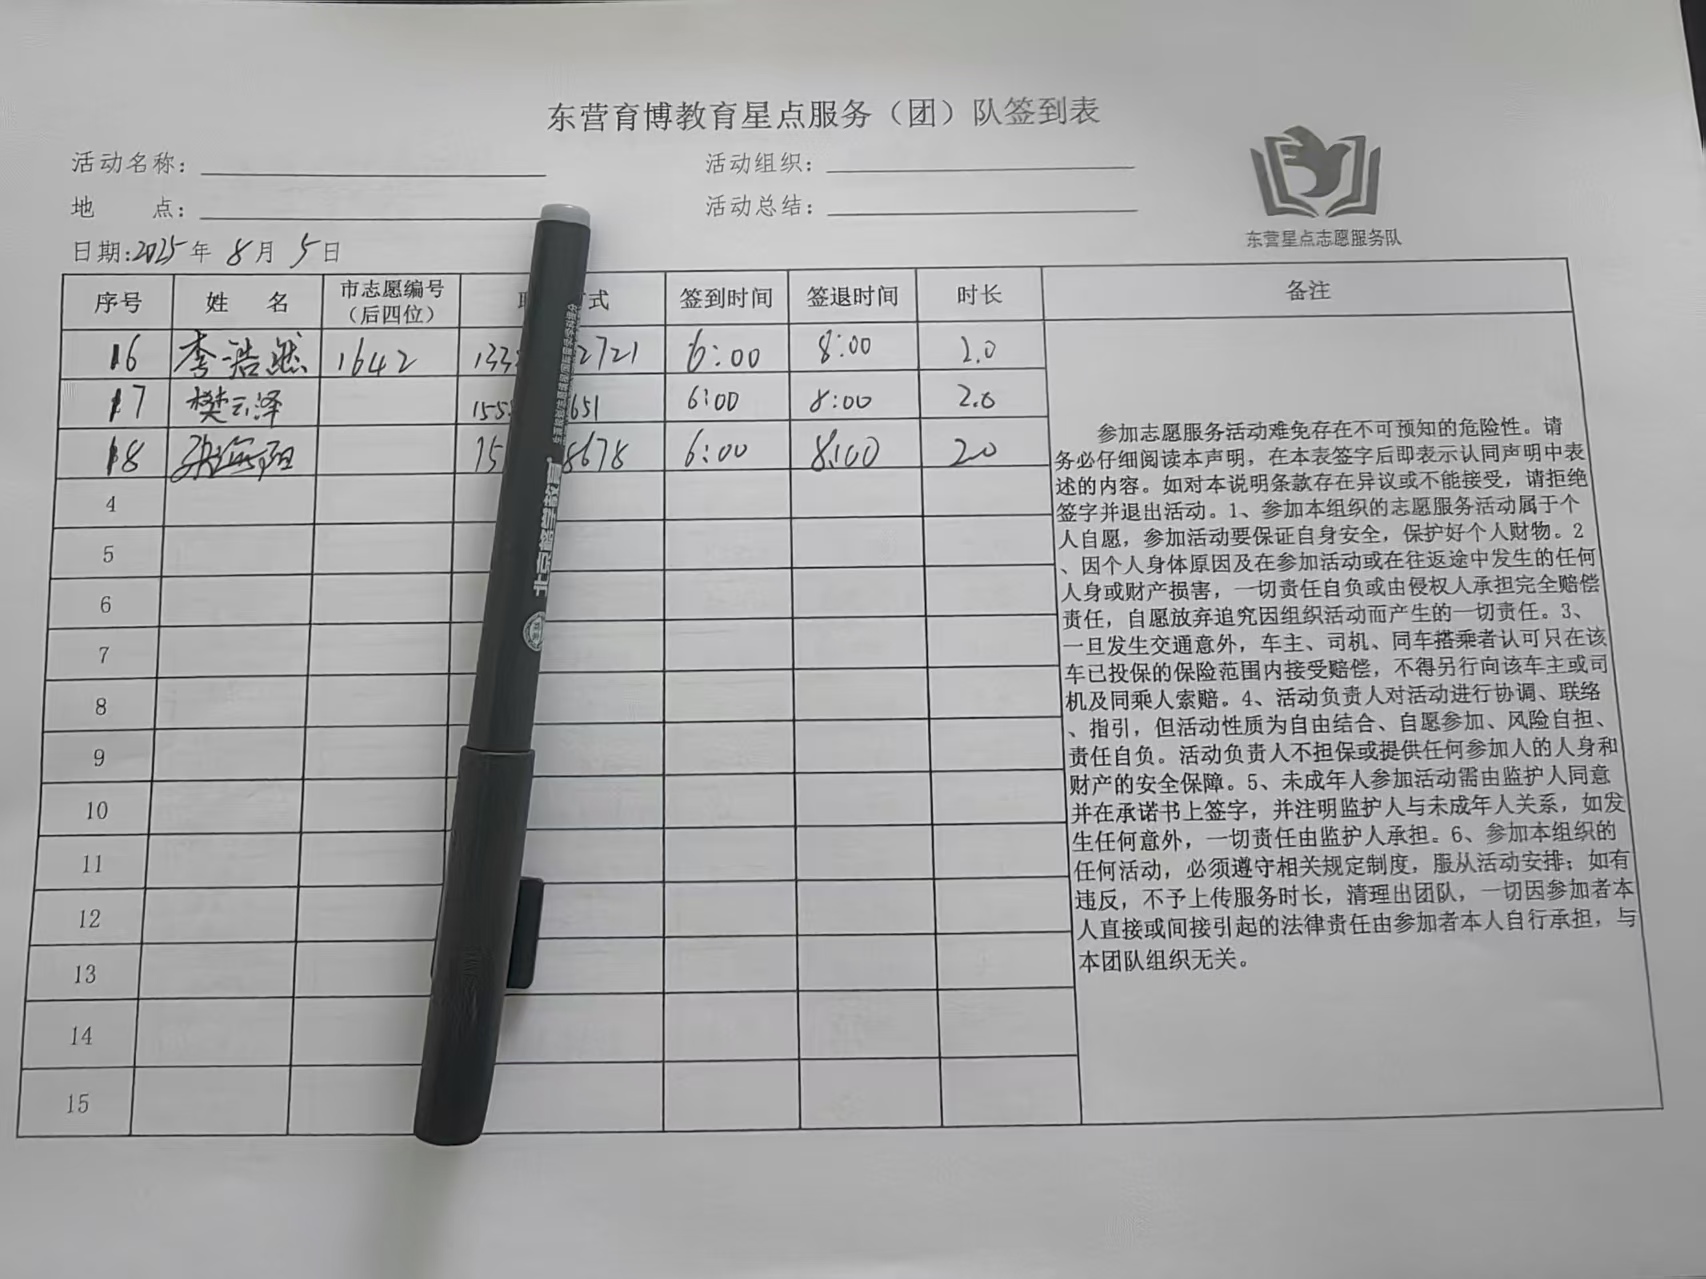 东营育博教育星点服务（团）队签到表
活动名称：
活动组织：
地 点：
活动总结：
东营星点志愿服务队
日期:2025年 8月 5日
序号 姓 名 市志愿编号（后四位） 式 签到时间 签退时间 时长 备注
16 李浩然 1642 2721 6:00 8:00 2.0
17 樊云泽 651 6:00 8:00 2.0
18 8678 6:00 8:00 20
4
5
6
7
8
9
10
11
12
13
14
15
参加志愿服务活动难免存在不可预知的危险性。请
务必仔细阅读本声明，在本表签字后即表示认同声明中表
述的内容。如对本说明条款存在异议或不能接受，请拒绝
签字并退出活动。1、参加本组织的志愿服务活动属于个
人自愿，参加活动要保证自身安全，保护好个人财物。2
、因个人身体原因及在参加活动或在往返途中发生的任何
人身或财产损害，一切责任自负或由侵权人承担完全赔偿
责任，自愿放弃追究因组织活动而产生的一切责任。3、
一旦发生交通意外，车主、司机、同车搭乘者认可只在该
车已投保的保险范围内接受赔偿，不得另行向该车主或司
机及同乘人索赔。4、活动负责人对活动进行协调、联络
、指引，但活动性质为自由结合、自愿参加、风险自担、
责任自负。活动负责人不担保或提供任何参加人的人身和
财产的安全保障。5、未成年人参加活动需由监护人同意
并在承诺书上签字，并注明监护人与未成年人关系，如发
生任何意外，一切责任由监护人承担。6、参加本组织的
任何活动，必须遵守相关规定制度，服从活动安排；如有
违反，不予上传服务时长，清理出团队，一切因参加者本
人直接或间接引起的法律责任由参加者本人自行承担，与
本团队组织无关。